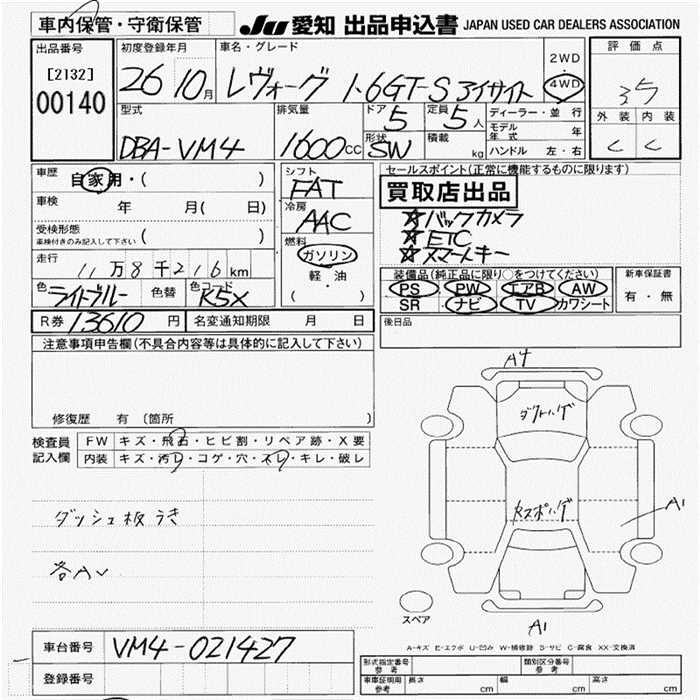 車内保管・守衛保管 JU 愛知 出品申込書 JAPAN USED CAR DEALERS ASSOCIATION
出品番号 初度登録年月 車名・グレード 評価点
[2132] 26 10月 レヴォーグ 1.6GT-S アイサイト 2WD 4WD 3.5
00140 外装 内装
型式 排気量 ドア 5 定員 5人 ディーラー・並行 C C
DBA-VM4 1600CC 形状 SW 積載 kg モデル年式 年
ハンドル 左・右
車歴 自家用・( ) シフト セールスポイント(正常に機能するものに限ります)
FAT 買取店出品
車検 年 月( 日) 冷房 ☆バックカメラ
AAC ☆ETC
受検形態 ( ) ☆スマートキー
車検付きのみ記入して下さい 燃料
走行 11万8千216km ガソリン 装備品(純正品に限り○をつけてください) 新車保証書
軽・油 PS PW エアB AW 有・無
色 ライトブルー 色替 色コード K5X ( ) SR ナビ TV カワシート
R券 13610円 名変通知期限 月 日 後日品
注意事項申告欄(不具合内容等は具体的に記入して下さい)
修復歴 有 (箇所 )
検査員 FW キズ・飛石・ヒビ割・リペア跡・X要
記入欄 内装 キズ・汚レ・コゲ・穴・スレ・キレ・破レ
ダッシュ板うき
各A
A4
A1
A1
スペア
A-キズ E-エクボ U-凹み W-補修跡 S-サビ C-腐食 XX-交換済
車台番号 VM4-021427
登録番号
型式指定番号 参考 類別区分番号 参考
車庫証明用 参考 長さ cm 幅 cm 高さ cm